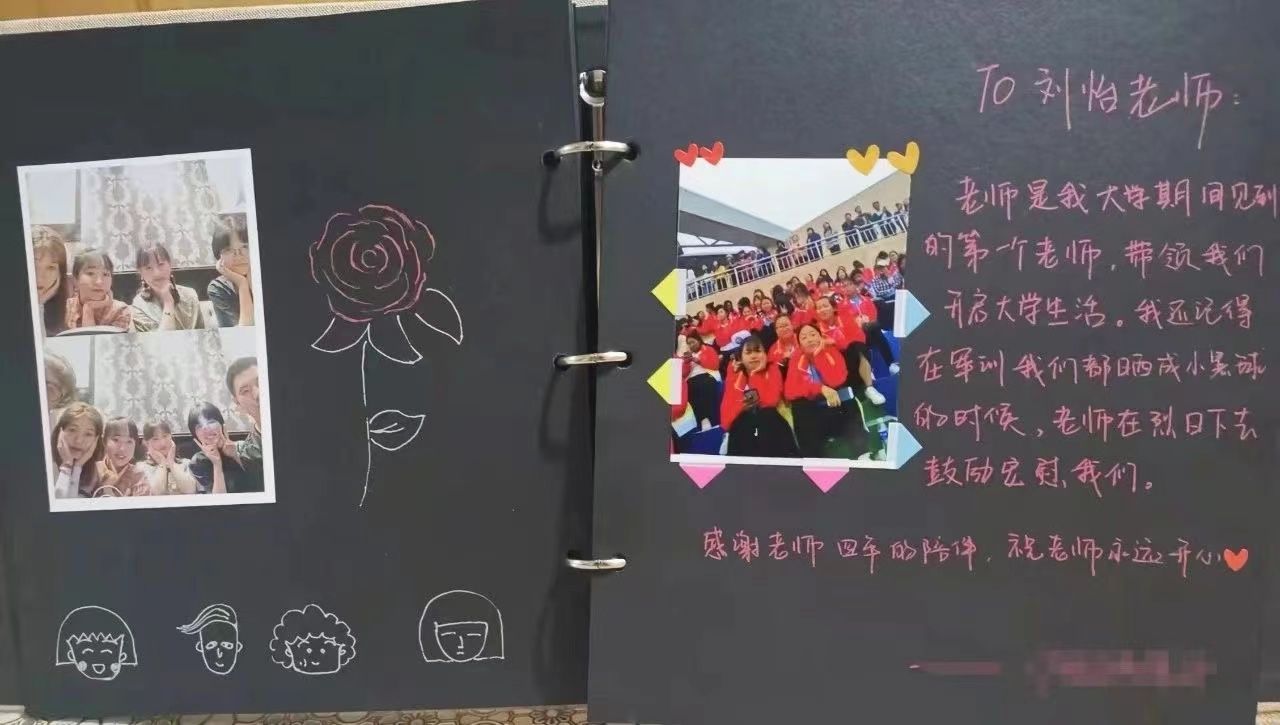 To 刘怡老师:
老师是我大学期间见到
的第一个老师，带领我们
开启大学生活。我还记得
在军训我们都晒成小黑球
的时候，老师在烈日下去
鼓励安慰我们。
感谢老师四年的陪伴，祝老师永远开心